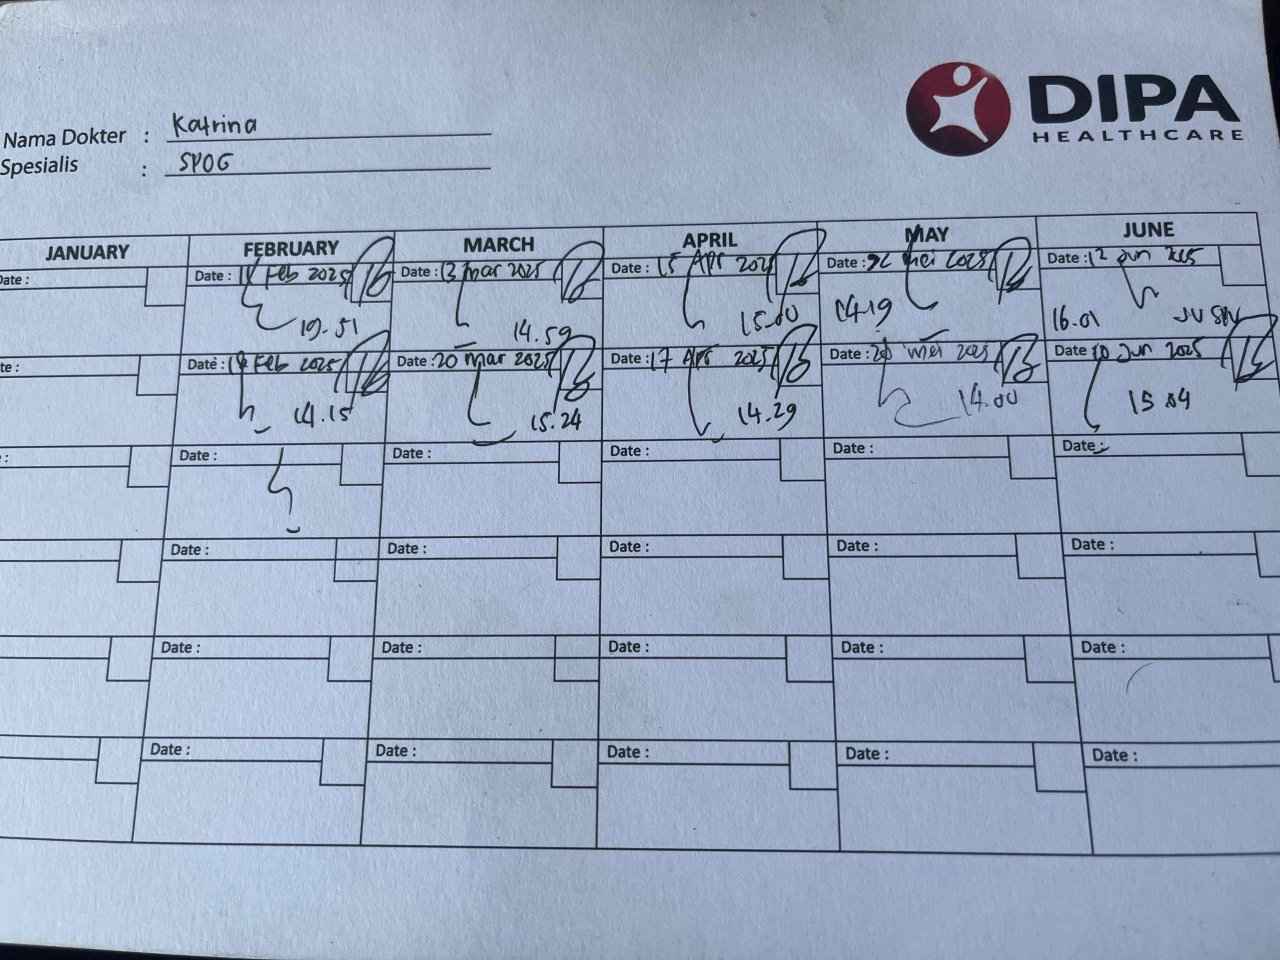 DIPA
HEALTHCARE
Nama Dokter : Katrina
Spesialis : SPOG
JANUARY FEBRUARY MARCH APRIL MAY JUNE
Date : Date : Feb 2025 Date : 13 mar 2025 Date : 15 Apr 2025 Date : mei 2025 Date : 12 Jun
14.59 15.00 14.19 16.01
Date : Feb 2025 Date : 20 mar 2025 Date : 17 Apr 2025 Date : mei 2025 Date Jun 2025
14.15 15.24 14.29 14.00 15
: Date : Date : Date : Date : Date :
Date : Date : Date : Date : Date :
Date : Date : Date : Date : Date :
Date : Date : Date : Date : Date :